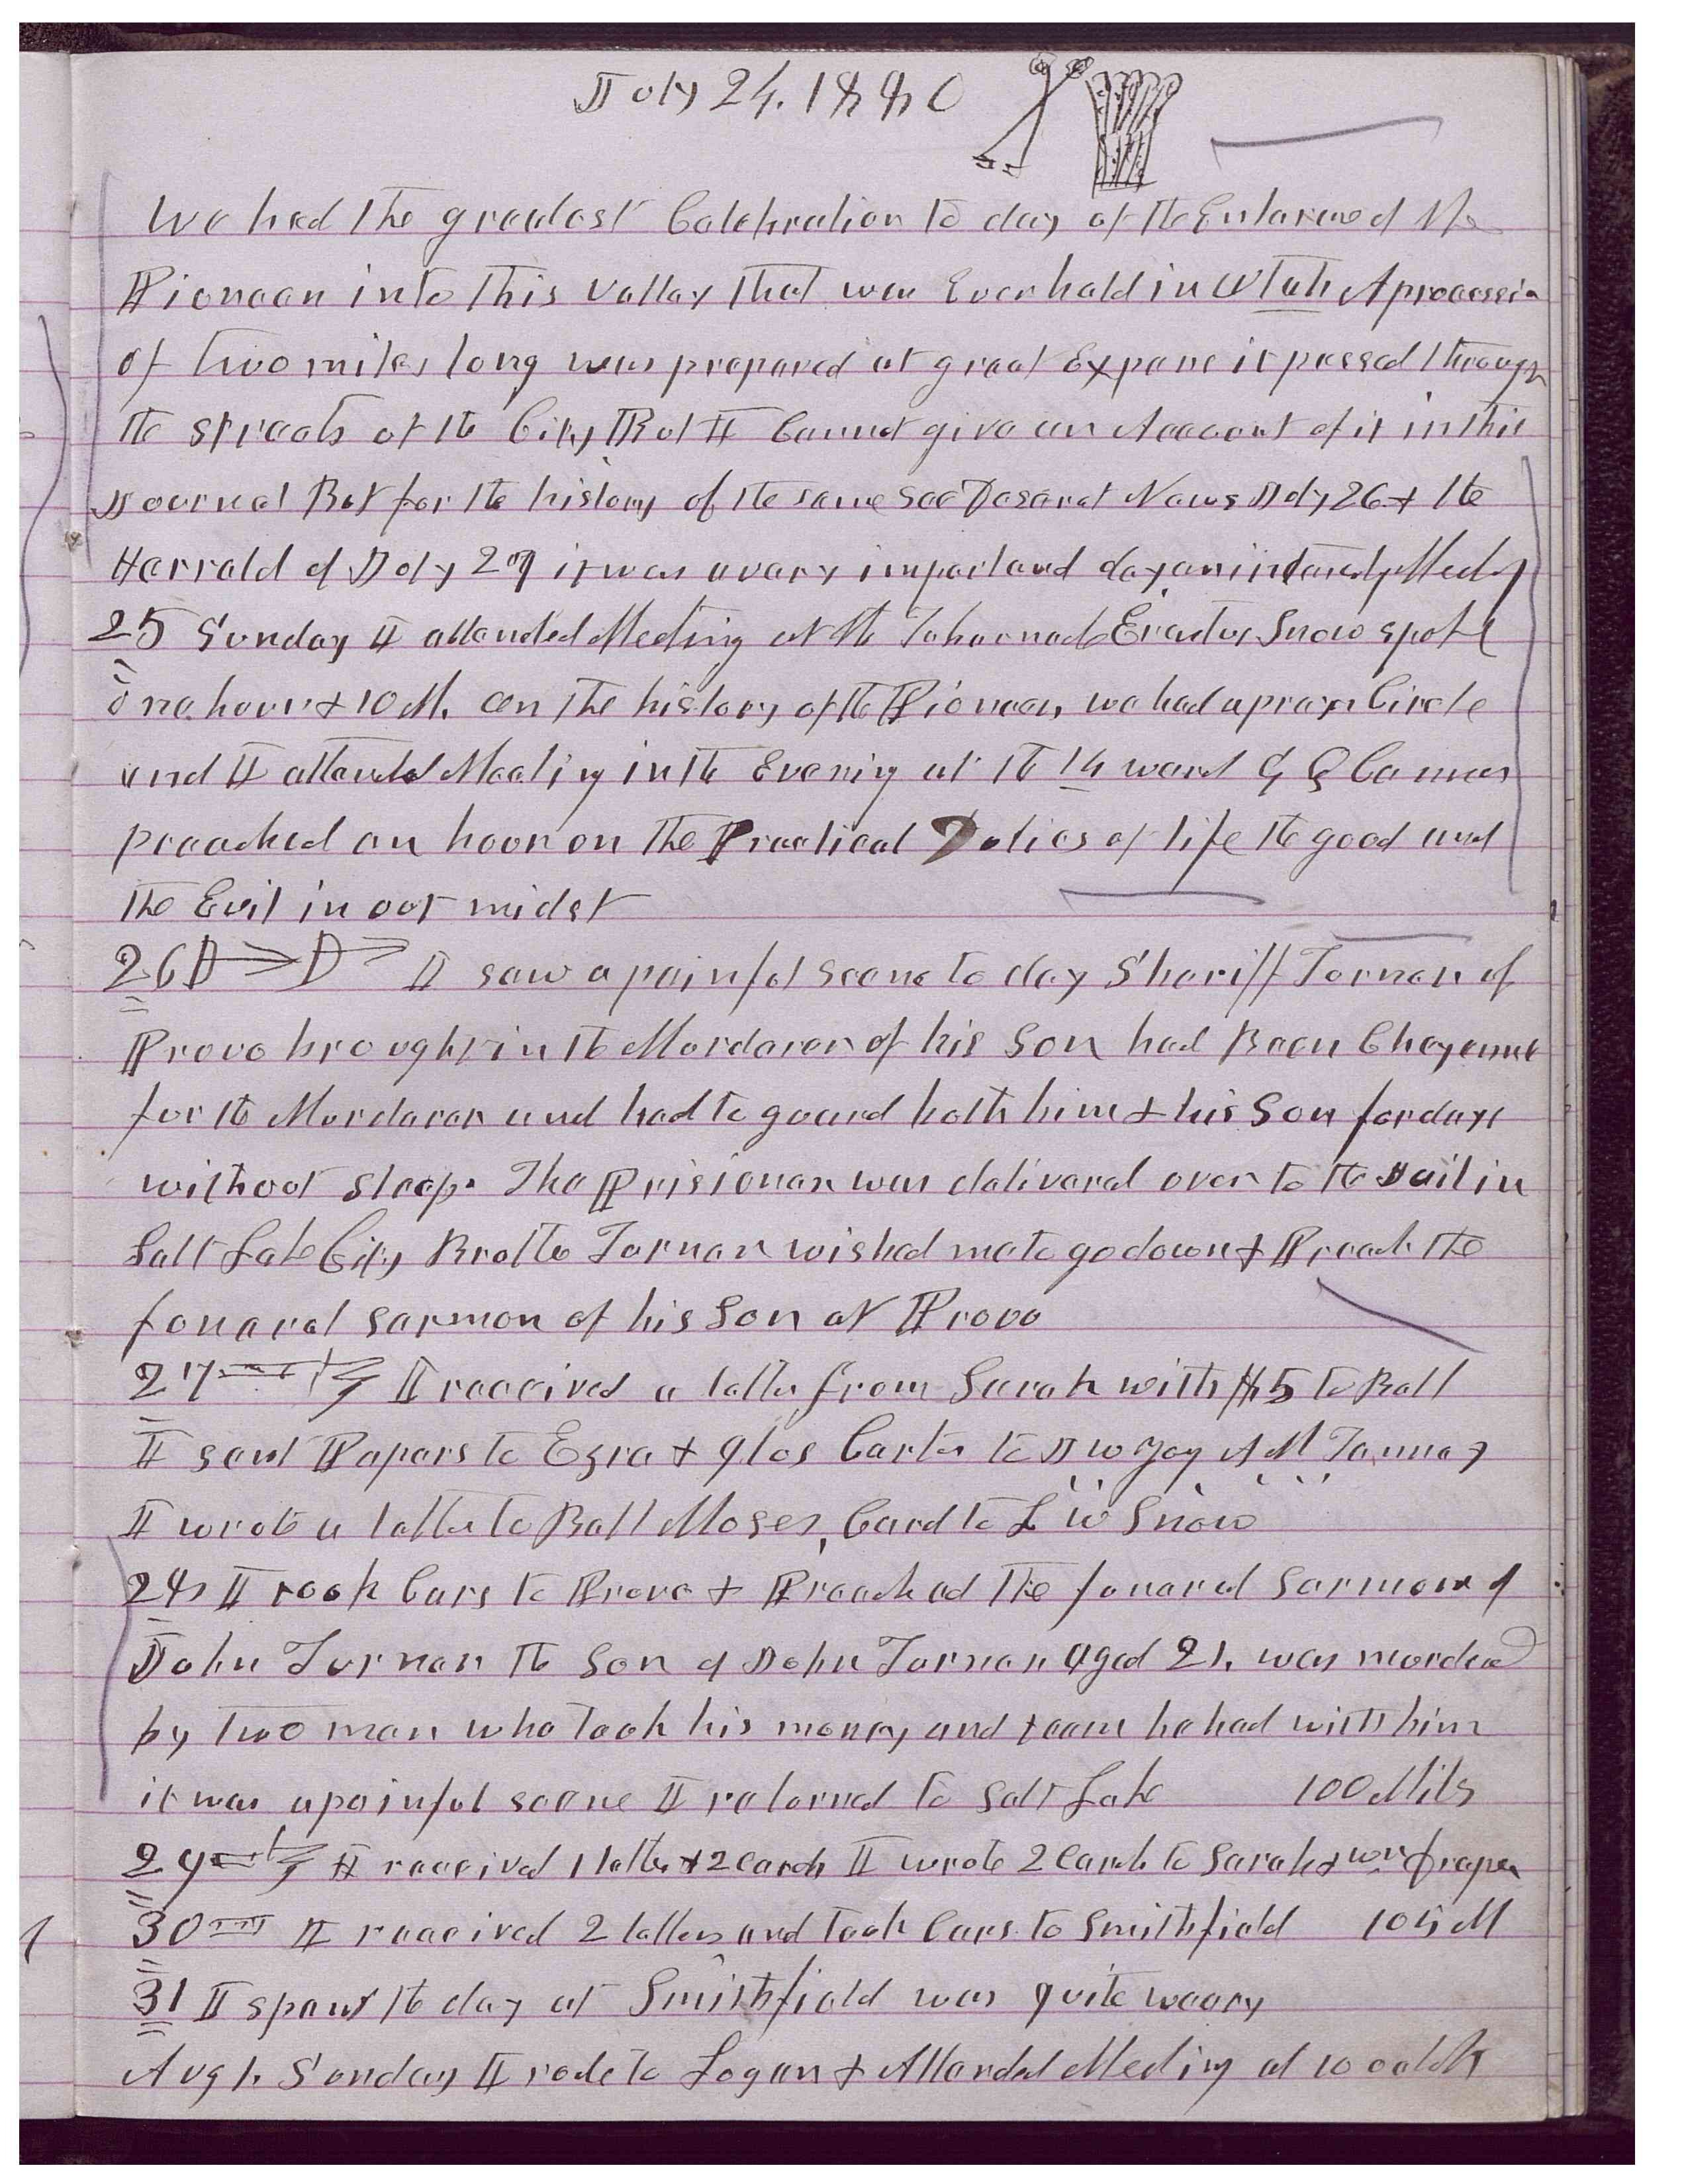 July 24. 1880
We had the greatest Celebration to day of the Entance of the
Pioneer into this valley that was Ever held in Utah A procession
of two miles long was prepared at great Expens it passed through
the streets of the City But I Cannot give an Account of it in this
Journal But for the history of the same see Deseret News July 26 & the
Herrald of July 27 it was a vary important day
25 Sunday I attended Meeting at the Tabernacle Erastus Snow spoke
one hour & 10 M. on the history of the Pioneers we had a prayer Circle
and I attended Meeting in the Evening at the 14 ward G Q Cannon
preached an hour on the Practical Duties of life the good and
the Evil in our midst
26 I saw a painful scene to day Sheriff Turner of
Provo brought in the Murderer of his Son had Been Cheyenne
for the Murderer and had to guard both him & his Son for days
without sleep. The Prisioner was delivered over to the Jail in
Salt Lake City Brother Turner wished me to go down & Preach the
funeral sermon of his Son at Provo
27 I received a letter from Sarah with $5 to Bell
I sent Papers to Ezra & Carter to J W Joy A M Tanner
I wrote a letter to Bell Moses, Card to L W Snow
28 I took Cars to Provo & Preached the funeral Sermon of
John Turner the Son of John Turner aged 21. was murdered
by two men who took his money and team he had with him
it was a painful scene I returned to Salt Lake 100 Miles
29 I received 1 letter & 2 cards I wrote 2 Cards to Sarah & Wm Draper
30 I received 2 letters and took Cars to Smithfield 105 M
31 I spent the day at Smithfield was quite weary
Aug 1. Sunday I rode to Logan & Attended Meeting at 10 oclok